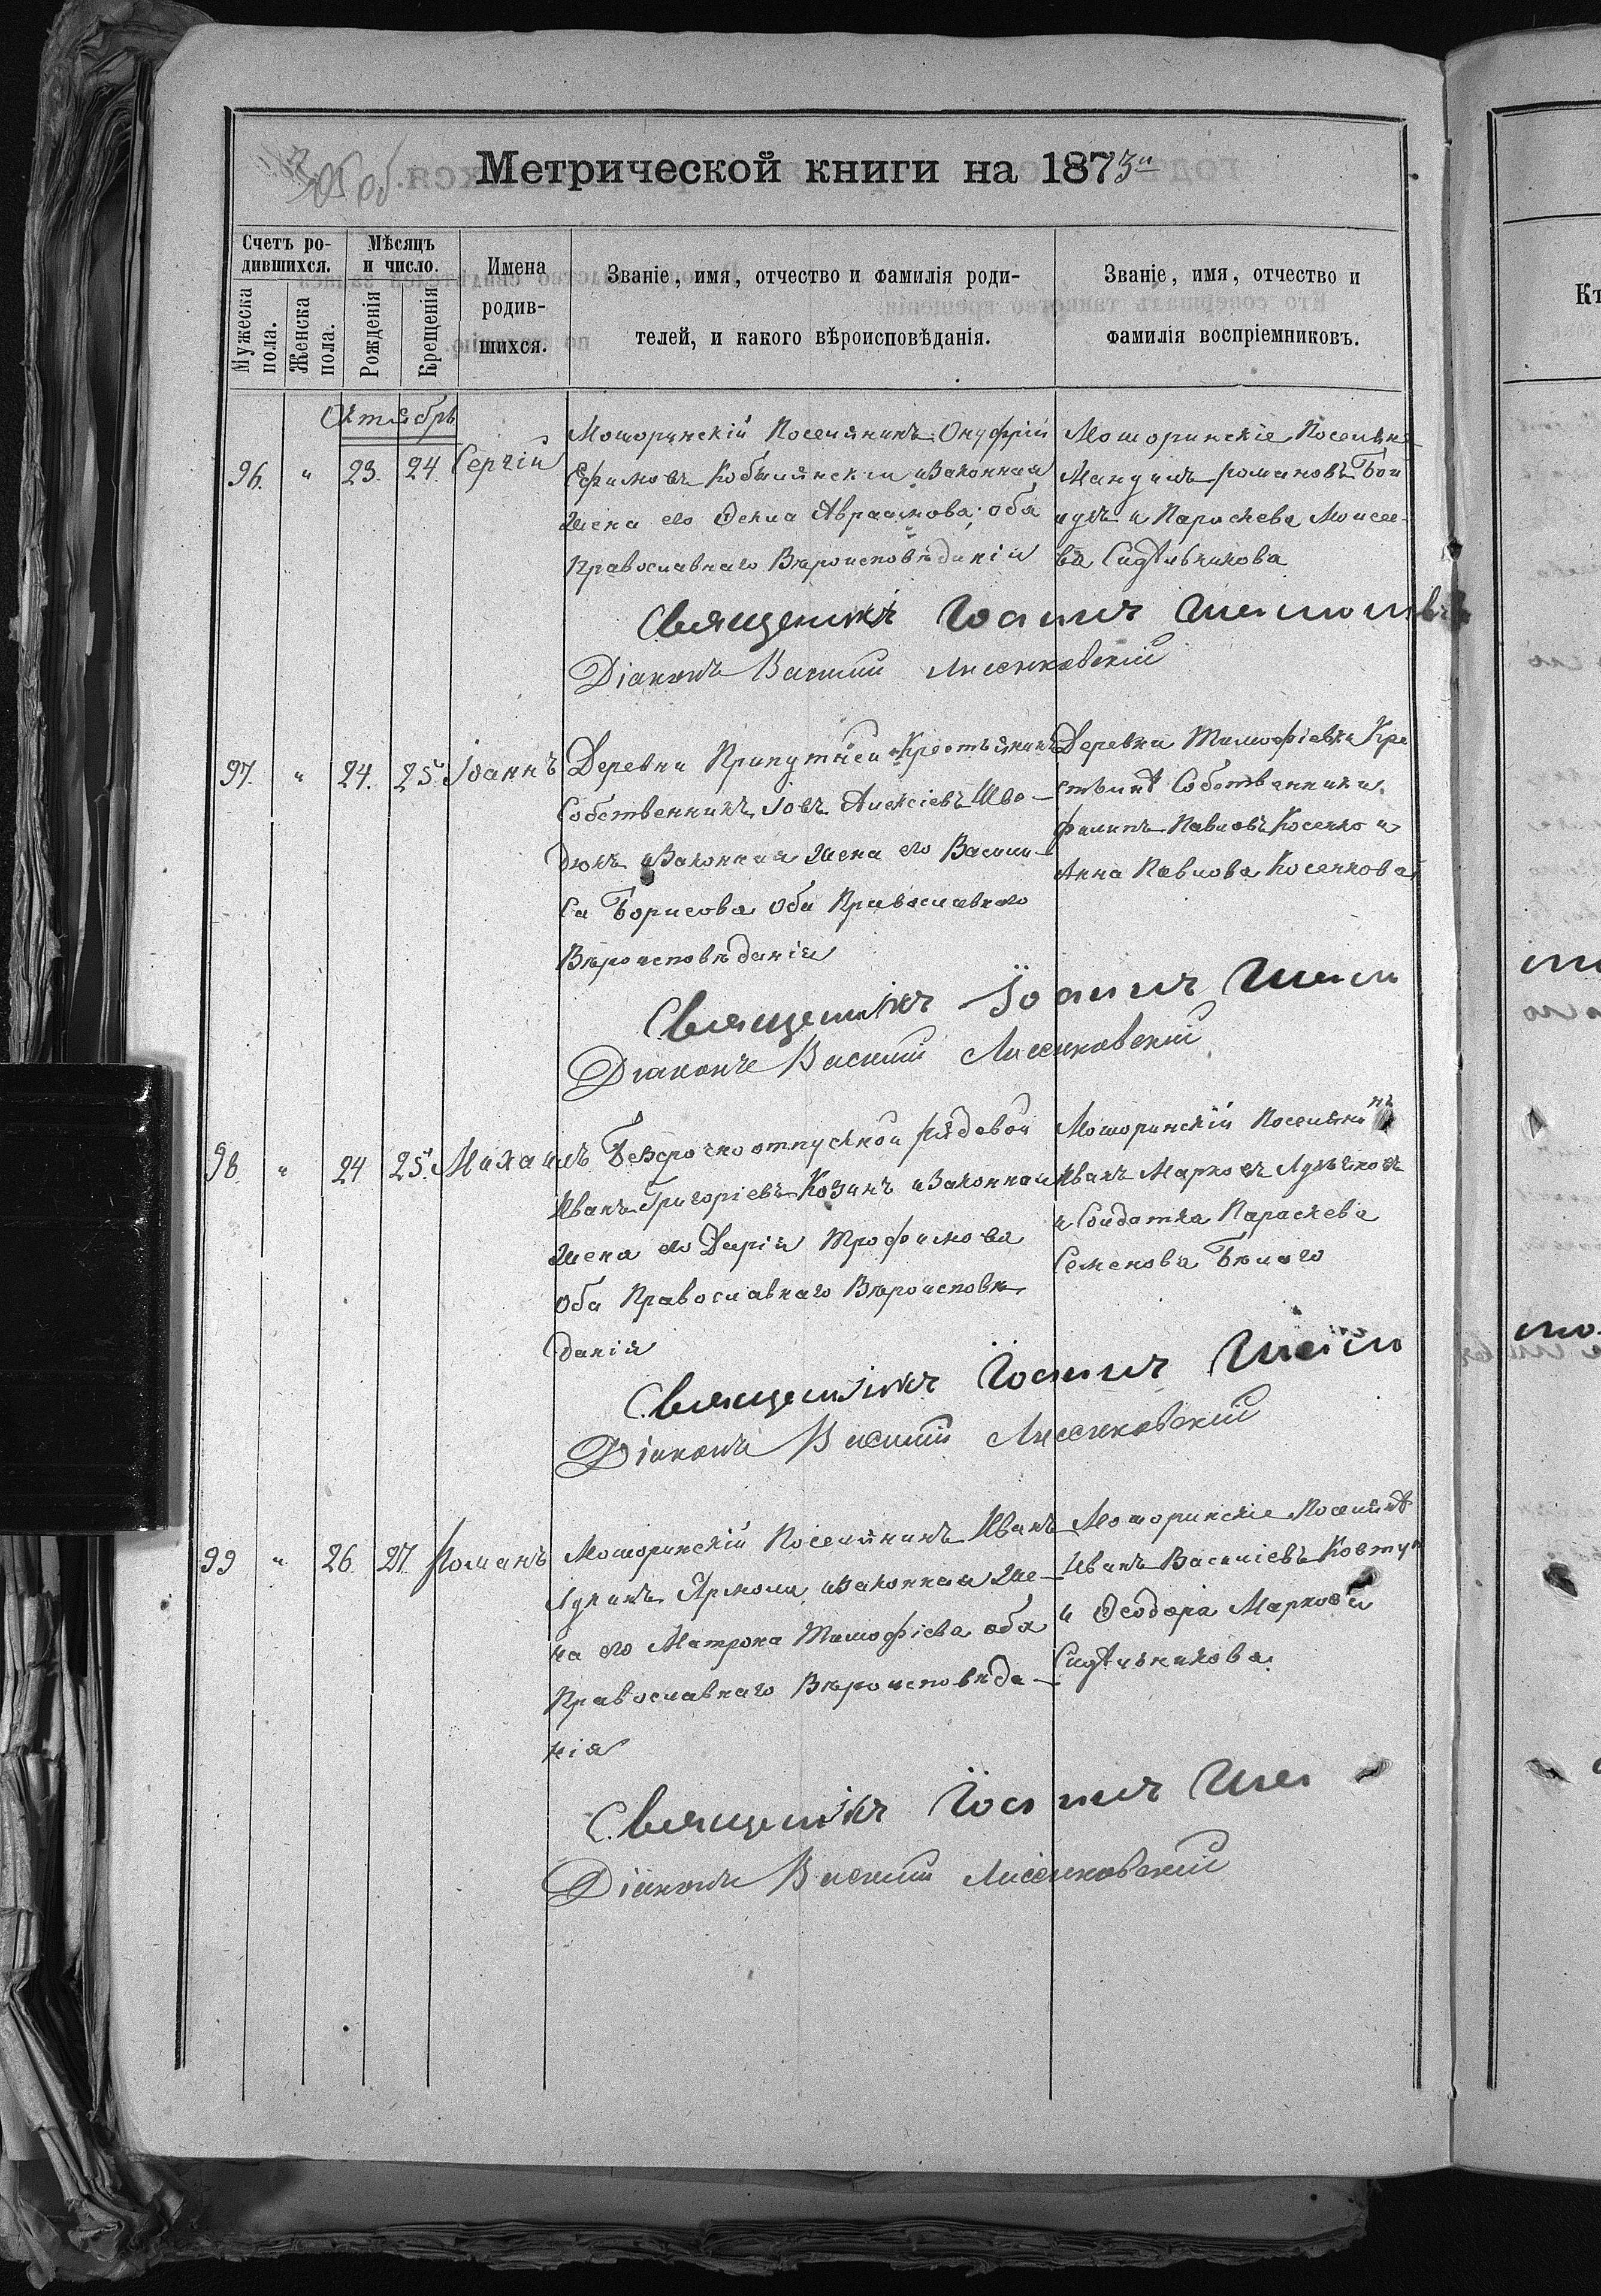 305 об.
Метрической книги на 1873й
Счетъ ро-
дившихся.
Мѣсяцъ
и число.
Мужеска
пола.
Женска
пола.
Рожденія
Крещенія
Имена
родив-
шихся.
Званіе, имя, отчество и фамилія роди-
телей, и какого вѣроисповѣданія.
Званіе, имя, отчество и
фамилія воспріемниковъ.
Октябрь
96. " 23. 24. Сергій
Мошоринскій Поселянинъ Онуфрій
Ефимовъ Кобылянскій и Законная
Жена его Фекла Авраамова; оба
Православнаго Вѣроисповѣданія
Мошоринскіе Поселяне
Романовъ
и Параскева Моисее-
ва Сидѣльникова
Священникъ Іоаннъ
Діаконъ Василий Лисенковскій
97. " 24. 25. Іоаннъ
Деревни Крестьянинъ
Собственникъ Іовъ Алексіевъ Шво-
дюкъ и Законная Жена его Васили-
са Борисова Оба Православнаго
Вѣроисповѣданія
Деревни Тимофіевки Кре
стьянѣ Собственники
Филипъ Павловъ Косенко и
Анна Павлова Косенкова
Священникъ Іоаннъ
Діаконъ Василий Лисенковскій
98. " 24 25. Михаилъ
Безсрочноотпускной рядовой
Иванъ Григоріевъ Козинъ и Законная
Жена его Дарія Трофимова
Оба Православнаго Вѣроисповѣ
данія
Мошоринскій Поселянинъ
Иванъ Марковъ
и Солдатка Параскева
Семенова Бѣлаго
Священникъ Іоаннъ
Діаконъ Василий Лисенковскій
99 " 26. 27. Романъ
Мошоринскій Поселянинъ Иванъ
Лукинъ Ярмола и Законная Же-
на его Матрона Тимофіева оба
Православнаго Вѣроисповѣда-
нія
Мошоринскіе Поселянѣ
Иванъ Василіевъ Ковтун
и Феодора Маркова
Сидѣльникова.
Священникъ Іоаннъ
Діаконъ Василий Лисенковскій